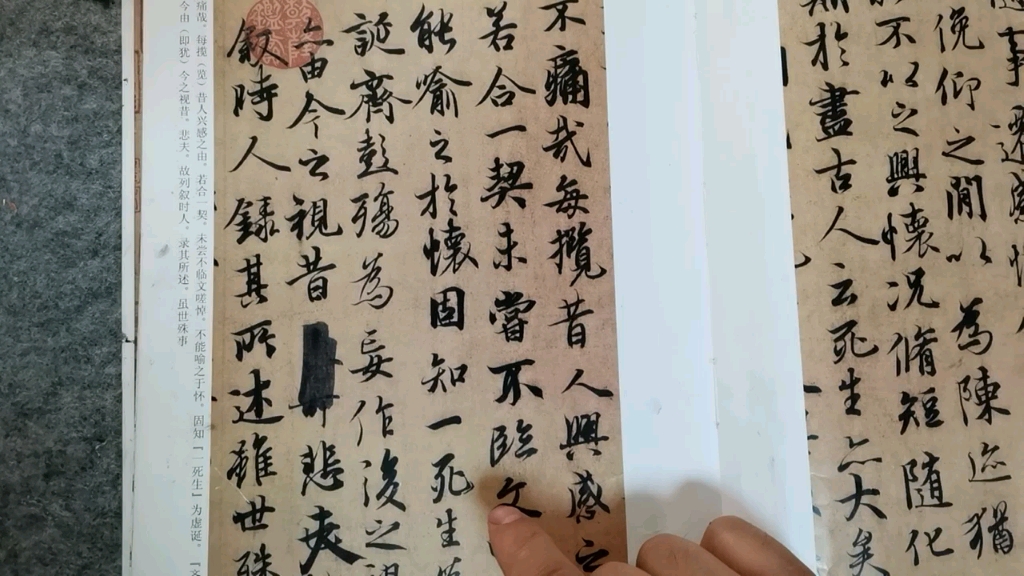 事遷感
俛仰之閒以為陳迹猶
不以之興懷況脩短隨化
於盡古人云死生亦大矣
不痛哉每攬昔人興感之
若合一契未嘗不臨文
能喻之於懷固知一死生
誕齊彭殤為妄作後之視
亦由今之視昔悲夫
敘時人錄其所述雖世殊
痛哉。每揽（览）昔人兴感之由，若合一契，未尝不临文嗟悼，不能喻之于怀。固知『一死生』为虚诞，『齐
今由（即犹）今之视昔。悲夫。故列叙时人，录其所述。虽世殊事